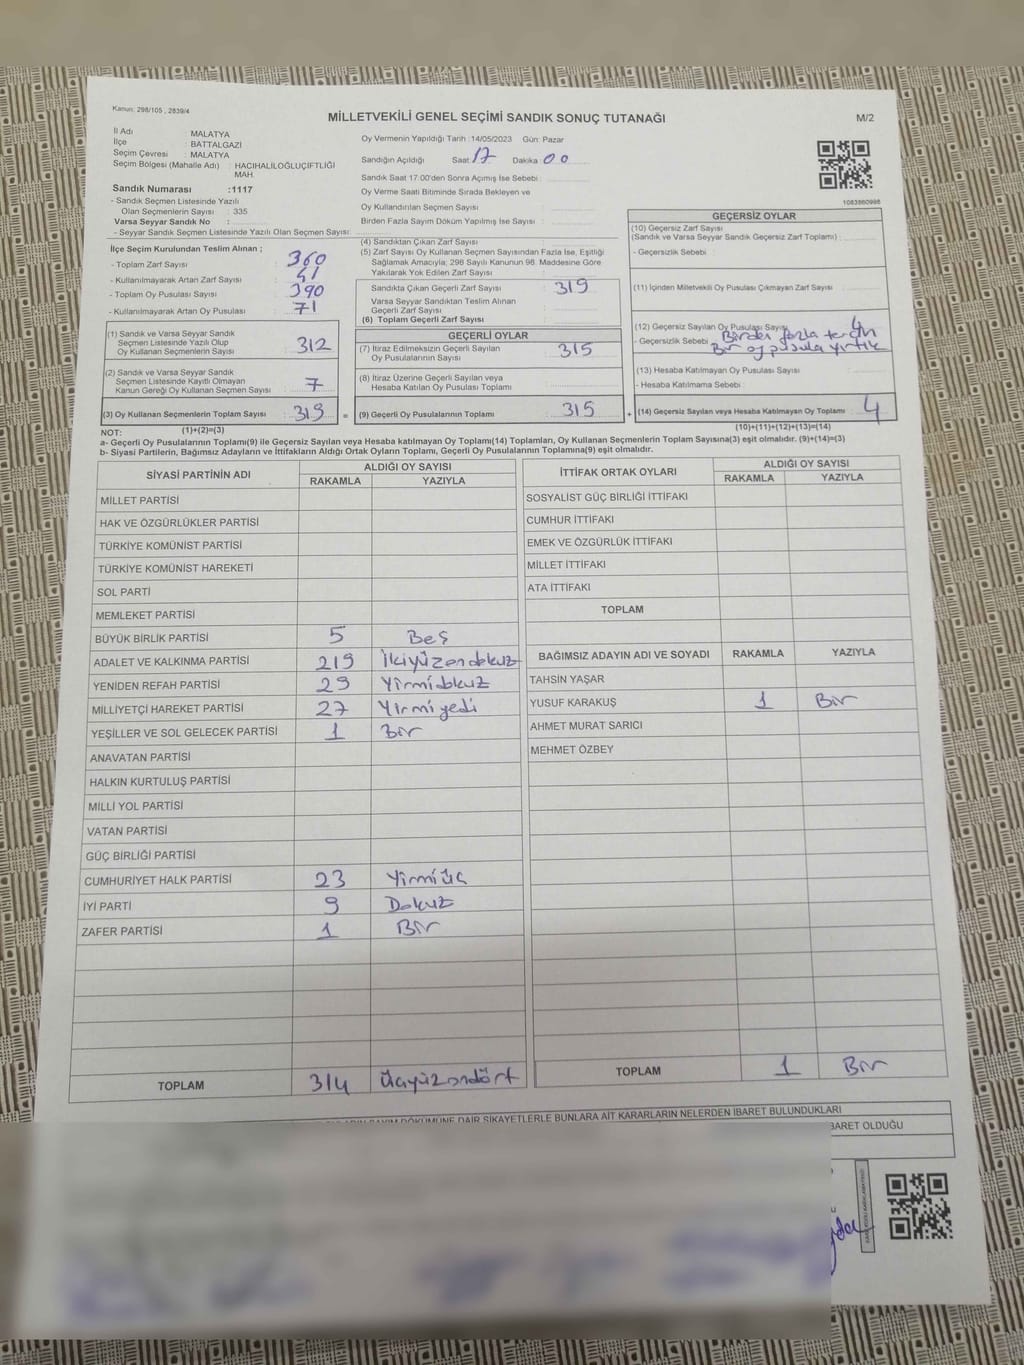 Kanun: 298/105 , 2839/4
MİLLETVEKİLİ GENEL SEÇİMİ SANDIK SONUÇ TUTANAĞI
M/2
İl Adı : MALATYA
İlçe : BATTALGAZİ
Seçim Çevresi : MALATYA
Seçim Bölgesi (Mahalle Adı) : HACIHALİLOĞLUÇİFTLİĞİ
MAH.
Sandık Numarası :1117
- Sandık Seçmen Listesinde Yazılı
Olan Seçmenlerin Sayısı : 335
Varsa Seyyar Sandık No :
- Seyyar Sandık Seçmen Listesinde Yazılı Olan Seçmen Sayısı:
Oy Vermenin Yapıldığı Tarih :14/05/2023 Gün: Pazar
Sandığın Açıldığı Saat: 17 Dakika: 00
Sandık Saat 17:00'den Sonra Açımış İse Sebebi :
Oy Verme Saati Bitiminde Sırada Bekleyen ve
Oy Kullandırılan Seçmen Sayısı :
Birden Fazla Sayım Döküm Yapılmış İse Sayısı :
1083860998
İlçe Seçim Kurulundan Teslim Alınan ;
- Toplam Zarf Sayısı : 360
- Kullanılmayarak Artan Zarf Sayısı : 41
- Toplam Oy Pusulası Sayısı : 390
- Kullanılmayarak Artan Oy Pusulası : 71
(1) Sandık ve Varsa Seyyar Sandık
Seçmen Listesinde Yazılı Olup
Oy Kullanan Seçmenlerin Sayısı : 312
(2) Sandık ve Varsa Seyyar Sandık
Seçmen Listesinde Kayıtlı Olmayan
Kanun Gereği Oy Kullanan Seçmen Sayısı : 7
(3) Oy Kullanan Seçmenlerin Toplam Sayısı : 319 =
(4) Sandıktan Çıkan Zarf Sayısı :
(5) Zarf Sayısı Oy Kullanan Seçmen Sayısından Fazla İse, Eşitliği
Sağlamak Amacıyla; 298 Sayılı Kanunun 98. Maddesine Göre
Yakılarak Yok Edilen Zarf Sayısı :
Sandıkta Çıkan Geçerli Zarf Sayısı : 319
Varsa Seyyar Sandıktan Teslim Alınan
Geçerli Zarf Sayısı :
(6) Toplam Geçerli Zarf Sayısı :
GEÇERLİ OYLAR
(7) İtiraz Edilmeksizin Geçerli Sayılan
Oy Pusulalarının Sayısı : 315
(8) İtiraz Üzerine Geçerli Sayılan veya
Hesaba Katılan Oy Pusulaları Toplamı :
(9) Geçerli Oy Pusulalarının Toplamı : 315 +
GEÇERSİZ OYLAR
(10) Geçersiz Zarf Sayısı
(Sandık ve Varsa Seyyar Sandık Geçersiz Zarf Toplamı) :
- Geçersizlik Sebebi :
(11) İçinden Milletvekili Oy Pusulası Çıkmayan Zarf Sayısı :
(12) Geçersiz Sayılan Oy Pusulası Sayısı : 4
- Geçersizlik Sebebi : Birden fazla tercih
Bir oy pusula yırtık
(13) Hesaba Katılmayan Oy Pusulası Sayısı :
- Hesaba Katılmama Sebebi :
(14) Geçersiz Sayılan veya Hesaba Katılmayan Oy Toplamı : 4
NOT: (1)+(2)=(3)
(10)+(11)+(12)+(13)=(14)
a- Geçerli Oy Pusulalarının Toplamı(9) ile Geçersiz Sayılan veya Hesaba katılmayan Oy Toplamı(14) Toplamları, Oy Kullanan Seçmenlerin Toplam Sayısına(3) eşit olmalıdır. (9)+(14)=(3)
b- Siyasi Partilerin, Bağımsız Adayların ve İttifakların Aldığı Ortak Oyların Toplamı, Geçerli Oy Pusulalarının Toplamına(9) eşit olmalıdır.
SİYASİ PARTİNİN ADI ALDIĞI OY SAYISI
RAKAMLA YAZIYLA
MİLLET PARTİSİ
HAK VE ÖZGÜRLÜKLER PARTİSİ
TÜRKİYE KOMÜNİST PARTİSİ
TÜRKİYE KOMÜNİST HAREKETİ
SOL PARTİ
MEMLEKET PARTİSİ
BÜYÜK BİRLİK PARTİSİ 5 Beş
ADALET VE KALKINMA PARTİSİ 219 ikiyüzondokuz
YENİDEN REFAH PARTİSİ 29 Yirmidokuz
MİLLİYETÇİ HAREKET PARTİSİ 27 Yirmiyedi
YEŞİLLER VE SOL GELECEK PARTİSİ 1 Bir
ANAVATAN PARTİSİ
HALKIN KURTULUŞ PARTİSİ
MİLLİ YOL PARTİSİ
VATAN PARTİSİ
GÜÇ BİRLİĞİ PARTİSİ
CUMHURİYET HALK PARTİSİ 23 Yirmiüç
İYİ PARTİ 9 Dokuz
ZAFER PARTİSİ 1 Bir
TOPLAM 314 Üçyüzondört
İTTİFAK ORTAK OYLARI ALDIĞI OY SAYISI
RAKAMLA YAZIYLA
SOSYALİST GÜÇ BİRLİĞİ İTTİFAKI
CUMHUR İTTİFAKI
EMEK VE ÖZGÜRLÜK İTTİFAKI
MİLLET İTTİFAKI
ATA İTTİFAKI
TOPLAM
BAĞIMSIZ ADAYIN ADI VE SOYADI RAKAMLA YAZIYLA
TAHSİN YAŞAR
YUSUF KARAKUŞ 1 Bir
AHMET MURAT SARICI
MEHMET ÖZBEY
TOPLAM 1 Bir
DÖKÜMÜNE DAİR ŞİKAYETLERLE BUNLARA AİT KARARLARIN NELERDEN İBARET BULUNDUKLARI
BARET OLDUĞU